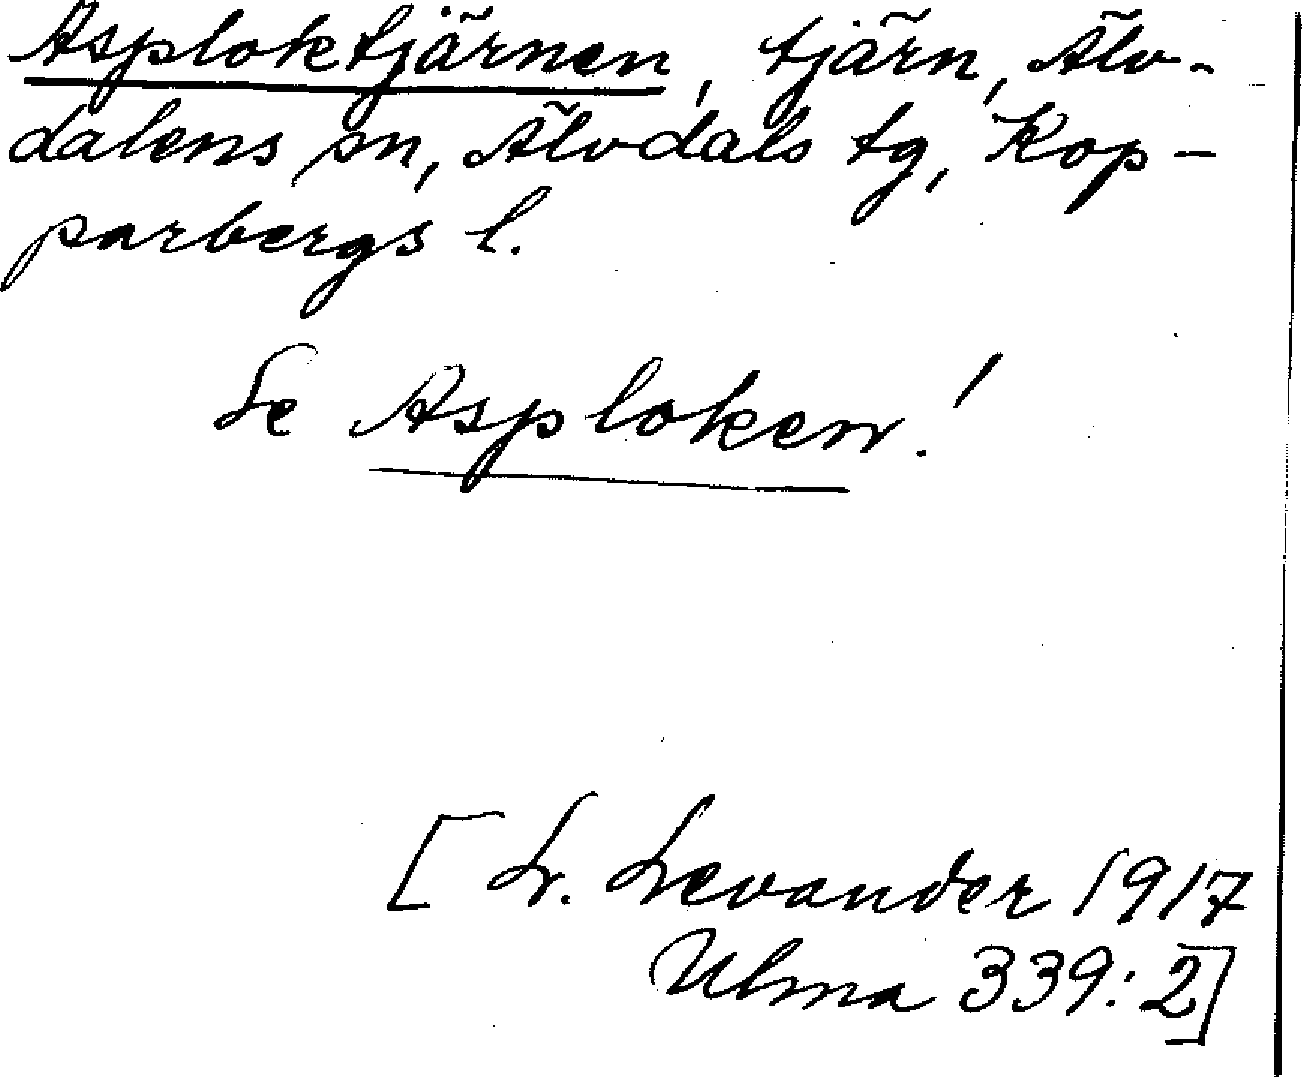 Asploktjärnen, tjärn, Älv-
dalens sn, Älvdals tg, Kop-
parbergs l.
Se Asploken!
[L. Levander 1917
Ulma 339:2]